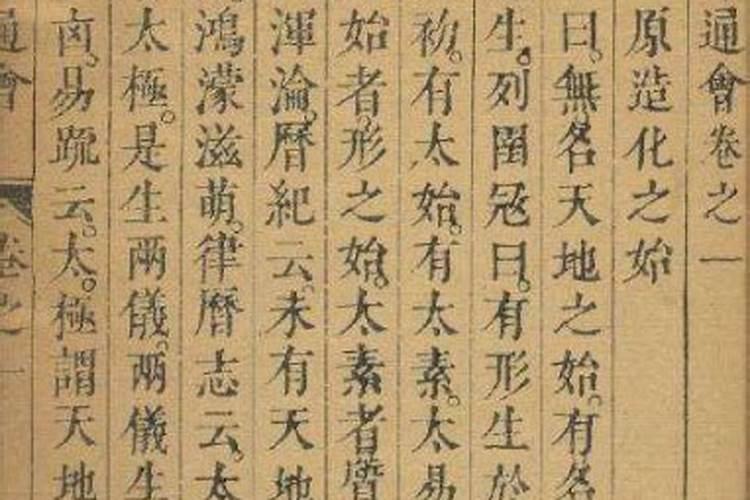 通會卷之一
原造化之始
曰無名天地之始有名
生列圄冦曰有形生於
初有太始有太素太易
始者形之始太素者質
渾淪曆紀云未有天地
鴻濛滋萌律曆志云太
太極是生兩儀兩儀生
鹵易䟽云太極謂天地
通會 卷之一